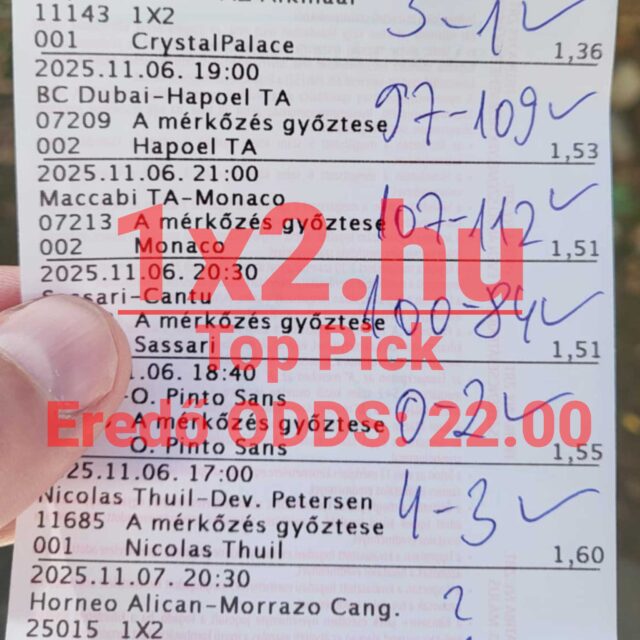 11143 1X2 3-1
001 CrystalPalace 1,36
2025.11.06. 19:00
BC Dubai-Hapoel TA
07209 A mérkőzés győztese 97-109
002 Hapoel TA 1,53
2025.11.06. 21:00
Maccabi TA-Monaco
07213 A mérkőzés győztese 107-112
002 Monaco 1,51
1x2.hu
2025.11.06. 20:30
Sassari-Cantu
A mérkőzés győztese 100-84
Sassari 1,51
Top Pick
.06. 18:40
-O. Pinto Sans
A mérkőzés győztese 0-2
Eredő ODDS: 22.00
O. Pinto Sans 1,55
25.11.06. 17:00
Nicolas Thuil-Dev. Petersen
11685 A mérkőzés győztese 4-3
001 Nicolas Thuil 1,60
2025.11.07. 20:30
Horneo Alican-Morrazo Cang. ?
25015 1X2